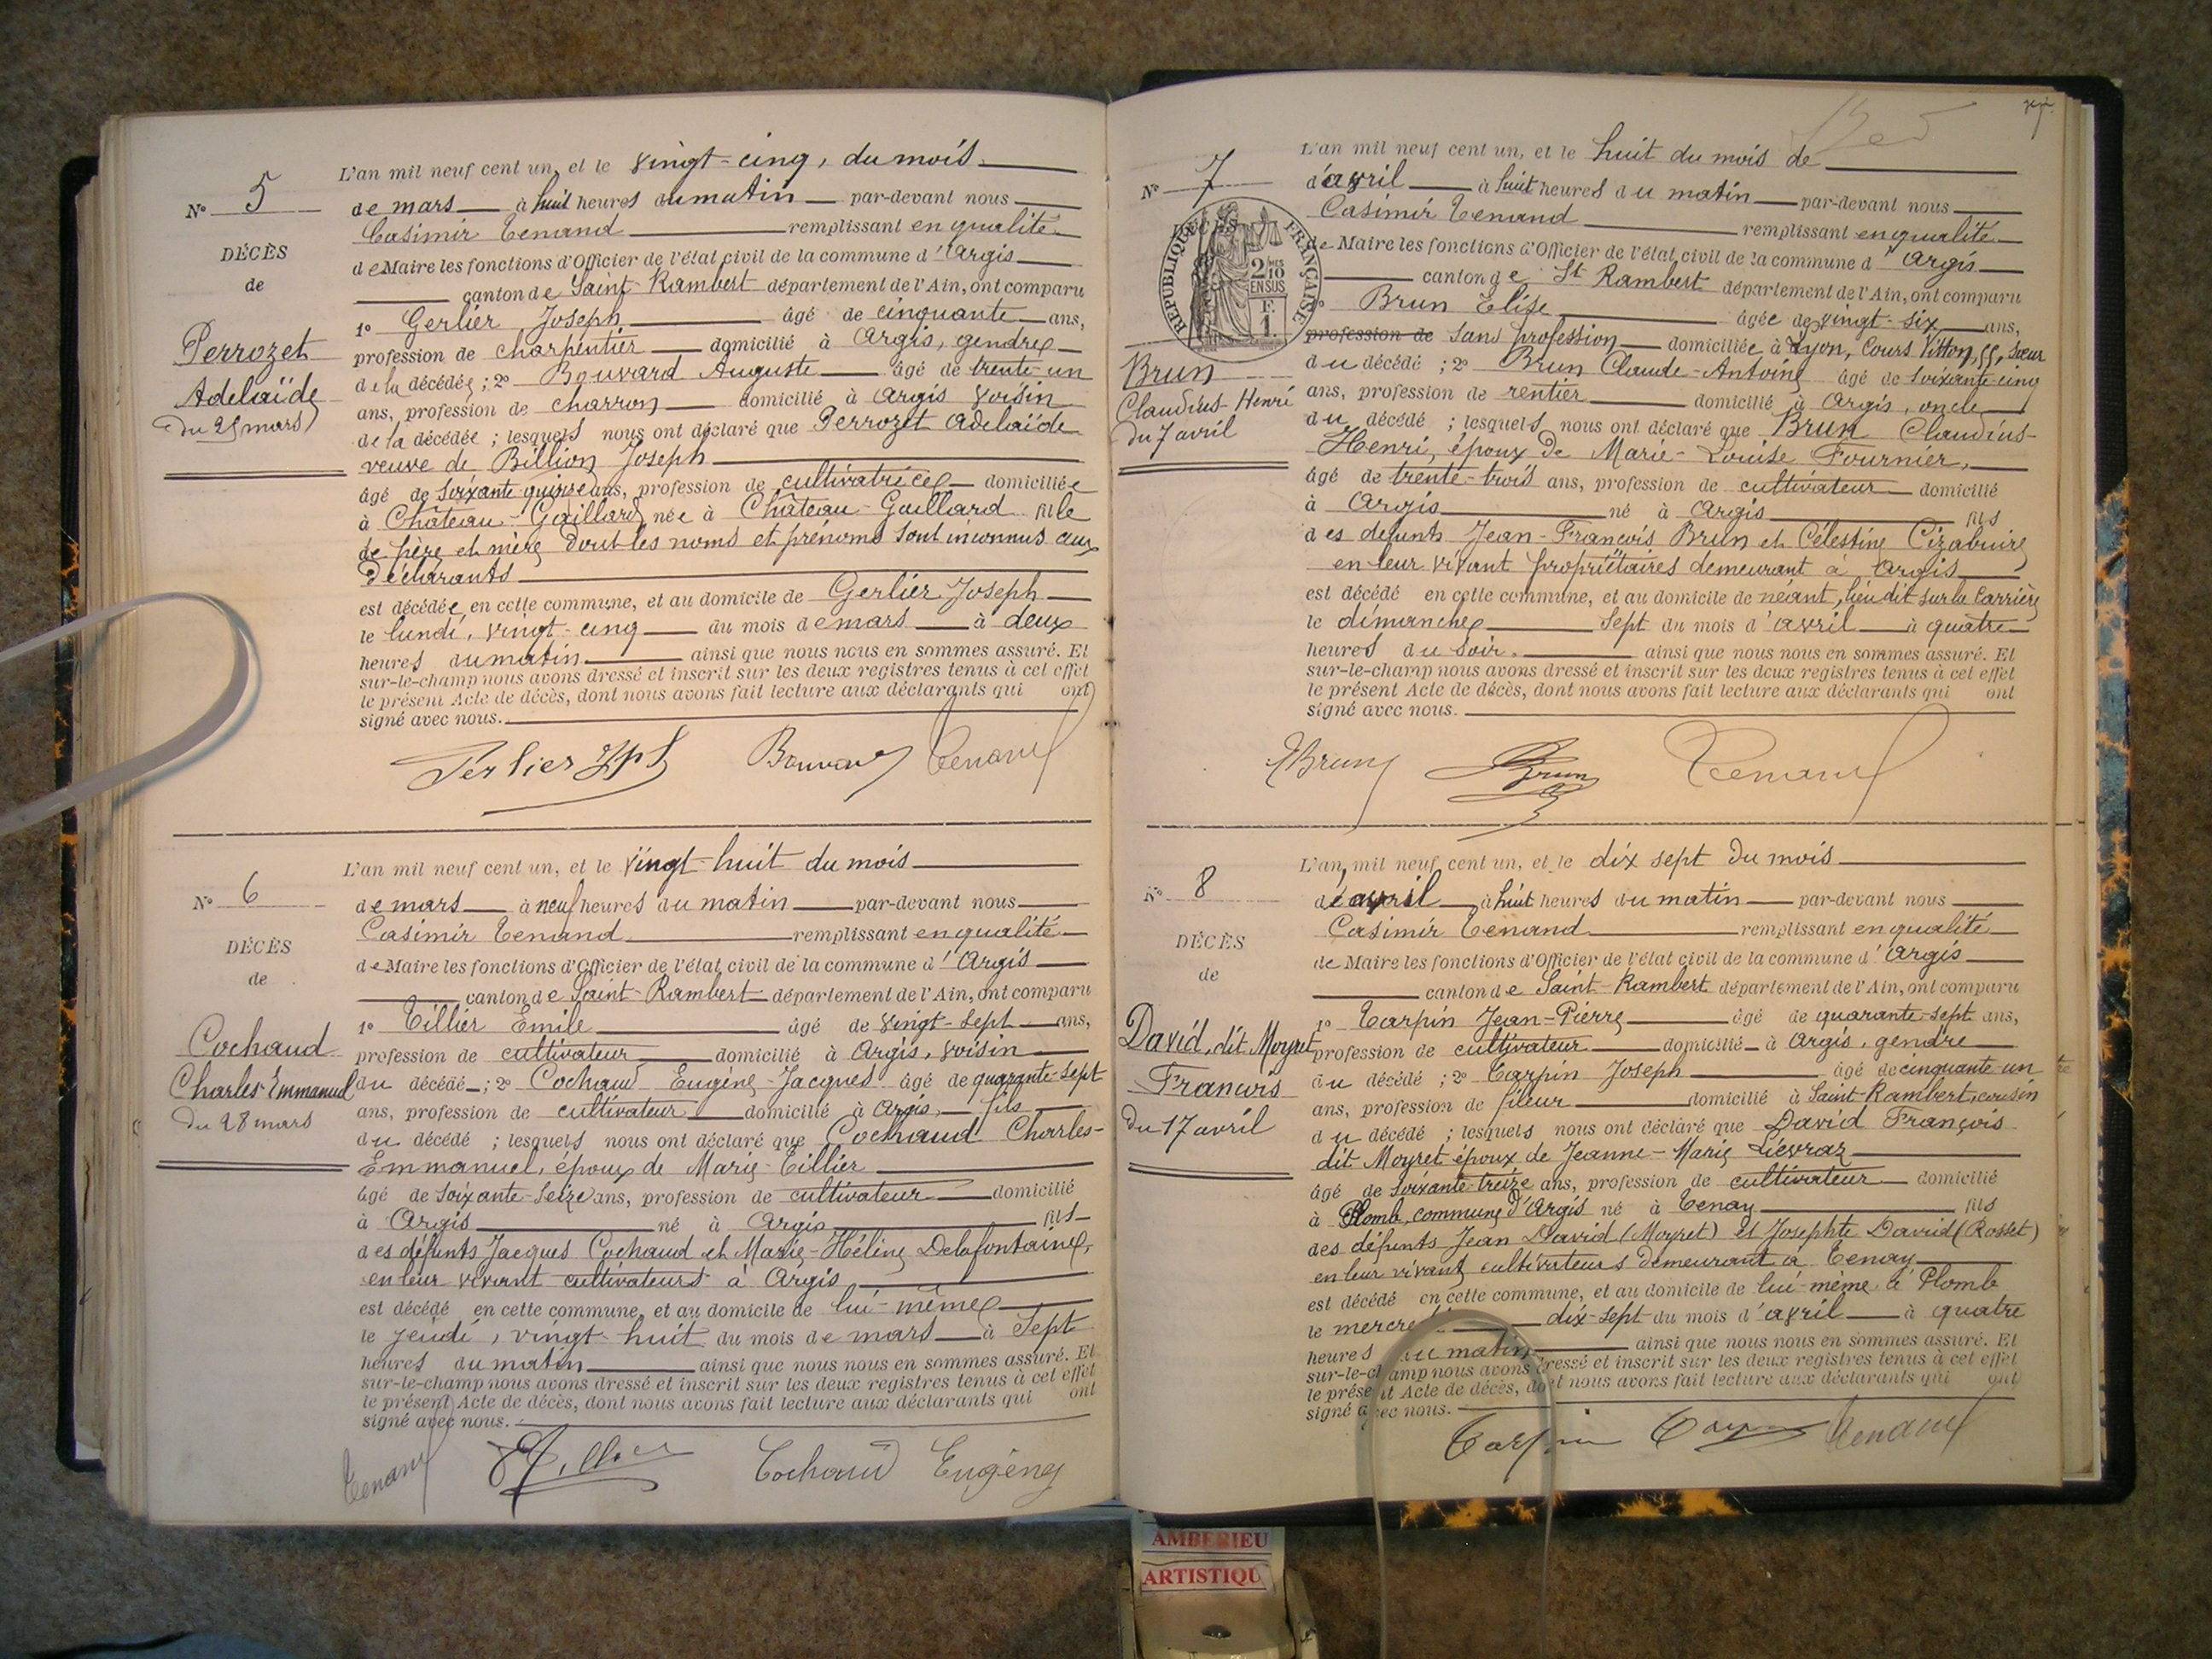 L'an mil neuf cent un, et le vingt-cinq, du mois
N° 5
de mars à huit heures du matin par-devant nous
Casimir Tenand remplissant en qualité
DÉCÈS
de Maire les fonctions d'Officier de l'état civil de la commune d'Argis
de
canton de Saint-Rambert département de l'Ain, ont comparu
1° Gerlier Joseph âgé de cinquante ans,
Perrozet
profession de charpentier domicilié à Argis, gendre
Adelaïde
de la décédée ; 2° Bouvard Auguste âgé de trente-un
du 25 mars
ans, profession de charron domicilié à Argis voisin
de la décédée ; lesquels nous ont déclaré que Perrozet Adelaïde
veuve de Billion Joseph
âgé de soixante-quinze ans, profession de cultivatrice domiciliée
à Château-Gaillard née à Château-Gaillard fille
de père et mère dont les noms et prénoms sont inconnus aux
déclarants
est décédée, en cette commune, et au domicile de Gerlier Joseph
le lundi, vingt-cinq du mois de mars à deux
heures du matin ainsi que nous nous en sommes assuré. Et
sur-le-champ nous avons dressé et inscrit sur les deux registres tenus à cet effet
le présent Acte de décès, dont nous avons fait lecture aux déclarants qui ont
signé avec nous.
Gerlier Jph Bouvard Tenand
L'an mil neuf cent un, et le vingt-huit du mois
N° 6
de mars à neuf heures du matin par-devant nous
Casimir Tenand remplissant en qualité
DÉCÈS
de Maire les fonctions d'Officier de l'état civil de la commune d'Argis
de
canton de Saint-Rambert département de l'Ain, ont comparu
1° Tillier Emile âgé de vingt-sept ans,
Cochaud
profession de cultivateur domicilié à Argis, voisin
Charles-Emmanuel
du décédé ; 2° Cochaud Eugène-Jacques âgé de quarante-sept
du 28 mars
ans, profession de cultivateur domicilié à Argis, fils
du décédé ; lesquels nous ont déclaré que Cochaud Charles-
Emmanuel, époux de Marie Tillier
âgé de soixante-seize ans, profession de cultivateur domicilié
à Argis né à Argis fils
des défunts Jacques Cochaud et Marie-Hélène Delafontaine,
en leur vivant cultivateurs à Argis
est décédé en cette commune, et au domicile de lui-même
le jeudi, vingt-huit du mois de mars à sept
heures du matin ainsi que nous nous en sommes assuré. Et
sur-le-champ nous avons dressé et inscrit sur les deux registres tenus à cet effet
le présent Acte de décès, dont nous avons fait lecture aux déclarants qui ont
signé avec nous.
Tenand E Tillier Cochaud Eugène
L'an mil neuf cent un, et le huit du mois de
N° 7
d'avril à huit heures du matin par-devant nous
Casimir Tenand remplissant en qualité
RÉPUBLIQUE FRANÇAISE
2/10 EN SUS
F. 1.
de Maire les fonctions d'Officier de l'état civil de la commune d'Argis
canton de St Rambert département de l'Ain, ont comparu
Brun Elise âgée de vingt-six ans,
profession de sans profession domiciliée à Lyon, Cours Vitton, 55, sœur
Brun
du décédé ; 2° Brun Claude-Antoine âgé de soixante-cinq
Claudius-Henri
ans, profession de rentier domicilié à Argis, oncle
du 7 avril
du décédé ; lesquels nous ont déclaré que Brun Claudius-
Henri, époux de Marie-Louise Fournier,
âgé de trente-trois ans, profession de cultivateur domicilié
à Argis né à Argis fils
des défunts Jean-François Brun et Célestine Cizabuire
en leur vivant propriétaires demeurant à Argis
est décédé en cette commune, et au domicile de néant, lieu dit sur la Carrière
le dimanche sept du mois d'avril à quatre
heures du soir. ainsi que nous nous en sommes assuré. Et
sur-le-champ nous avons dressé et inscrit sur les deux registres tenus à cet effet
le présent Acte de décès, dont nous avons fait lecture aux déclarants qui ont
signé avec nous.
EBrun Brun Tenand
L'an mil neuf cent un, et le dix sept du mois
N° 8
d'avril à huit heures du matin par-devant nous
Casimir Tenand remplissant en qualité
DÉCÈS
de Maire les fonctions d'Officier de l'état civil de la commune d'Argis
de
canton de Saint-Rambert département de l'Ain, ont comparu
1° Carpin Jean-Pierre âgé de quarante-sept ans,
David, dit Moyret
profession de cultivateur domicilié à Argis, gendre
François
du décédé ; 2° Carpin Joseph âgé de cinquante-un
ans, profession de fileur domicilié à Saint-Rambert, cousin
du 17 avril
du décédé ; lesquels nous ont déclaré que David François
dit Moyret époux de Jeanne-Marie Lievraz
âgé de soixante-treize ans, profession de cultivateur domicilié
à Plomb, commune d'Argis né à Tenay fils
des défunts Jean David (Moyret) et Josephte David (Rosset)
en leur vivant cultivateurs demeurant à Tenay
est décédé en cette commune, et au domicile de lui-même à Plomb
le mercredi dix-sept du mois d'avril à quatre
heures du matin ainsi que nous nous en sommes assuré. Et
sur-le-champ nous avons dressé et inscrit sur les deux registres tenus à cet effet
le présent Acte de décès, dont nous avons fait lecture aux déclarants qui ont
signé avec nous.
Carpin Carpin Tenand
AMBERIEU
ARTISTIQU